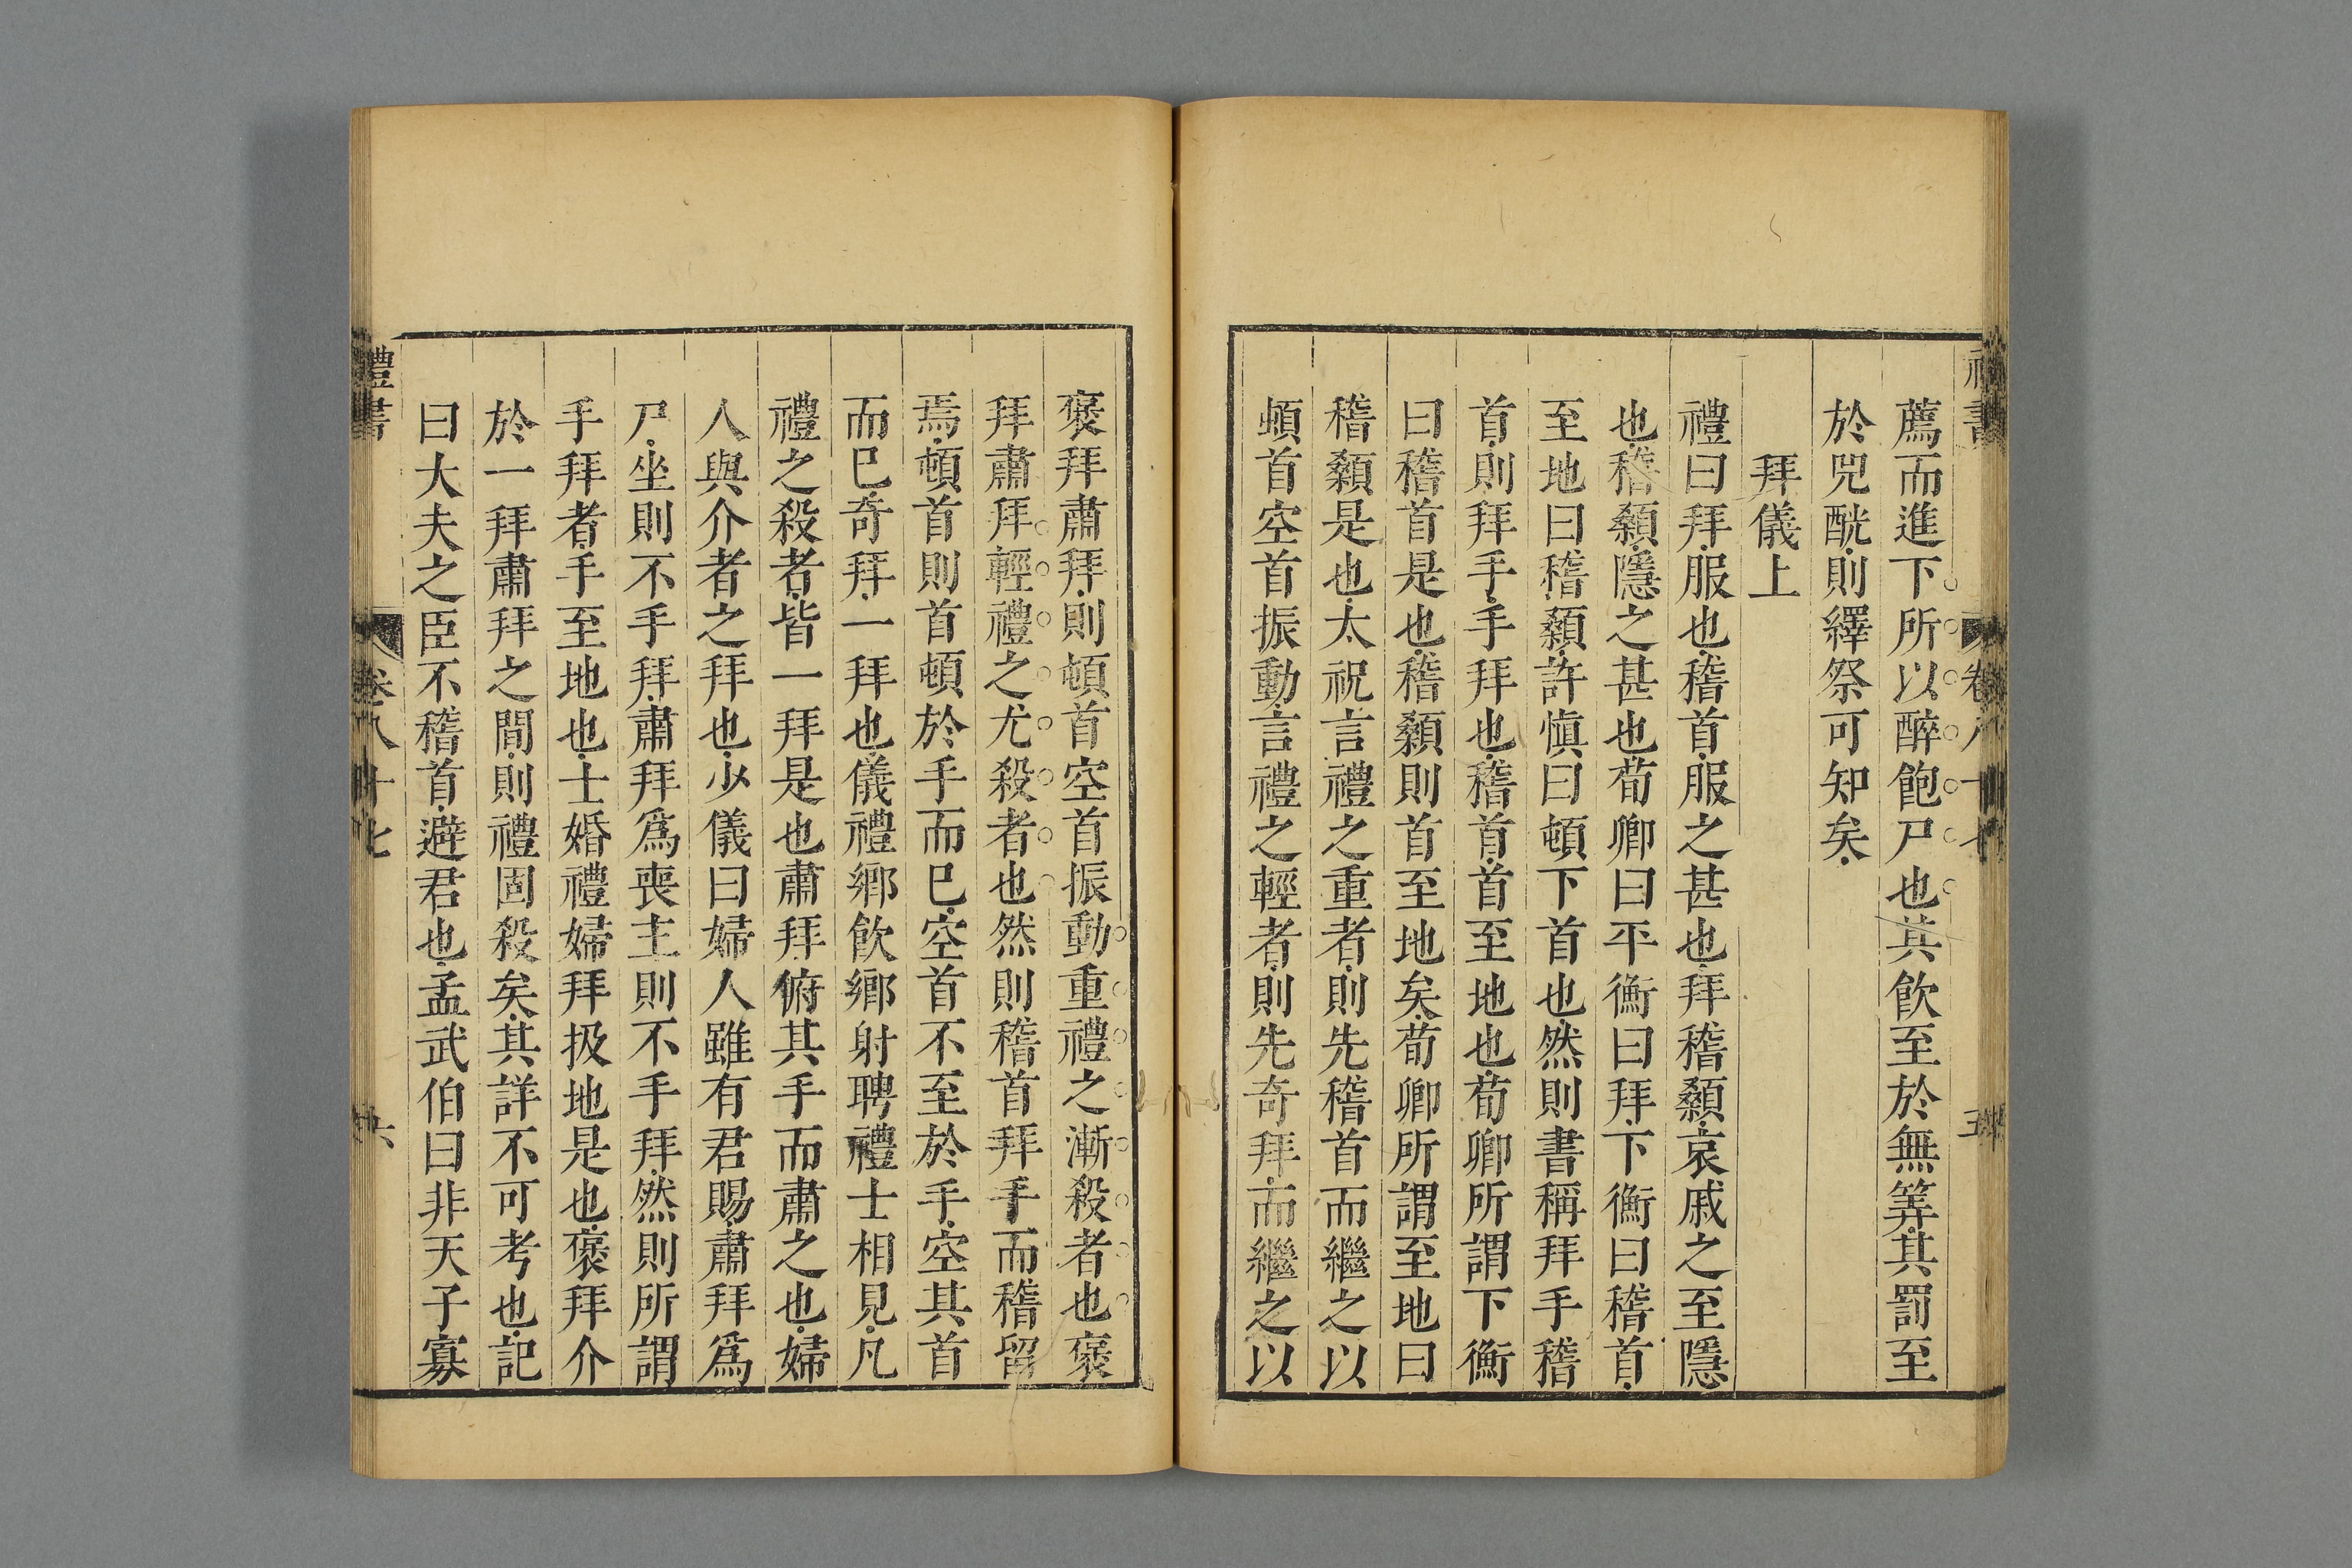 禮書 卷八十七 五
薦而進下所以醉飽尸也其飲至於無筭其罰至
於兕觥則繹祭可知矣
拜儀上
禮曰拜服也稽首服之甚也拜稽顙哀戚之至隱
也稽顙隱之甚也荀卿曰平衡曰拜下衡曰稽首
至地曰稽顙許慎曰頓下首也然則書稱拜手稽
首則拜手手拜也稽首首至地也荀卿所謂下衡
曰稽首是也稽顙則首至地矣荀卿所謂至地曰
稽顙是也太祝言禮之重者則先稽首而繼之以
頓首空首振動言禮之輕者則先奇拜而繼之以
褒拜肅拜則頓首空首振動重禮之漸殺者也褒
拜肅拜輕禮之尤殺者也然則稽首拜手而稽留
焉頓首則首頓於手而已空首不至於手空其首
而已奇拜一拜也儀禮鄉飲鄉射聘禮士相見凡
禮之殺者皆一拜是也肅拜俯其手而肅之也婦
人與介者之拜也少儀曰婦人雖有君賜肅拜爲
尸坐則不手拜肅拜爲喪主則不手拜然則所謂
手拜者手至地也士婚禮婦拜扱地是也褒拜介
於一拜肅拜之間則禮固殺矣其詳不可考也記
曰大夫之臣不稽首避君也孟武伯曰非天子寡
禮書 卷八十七 六